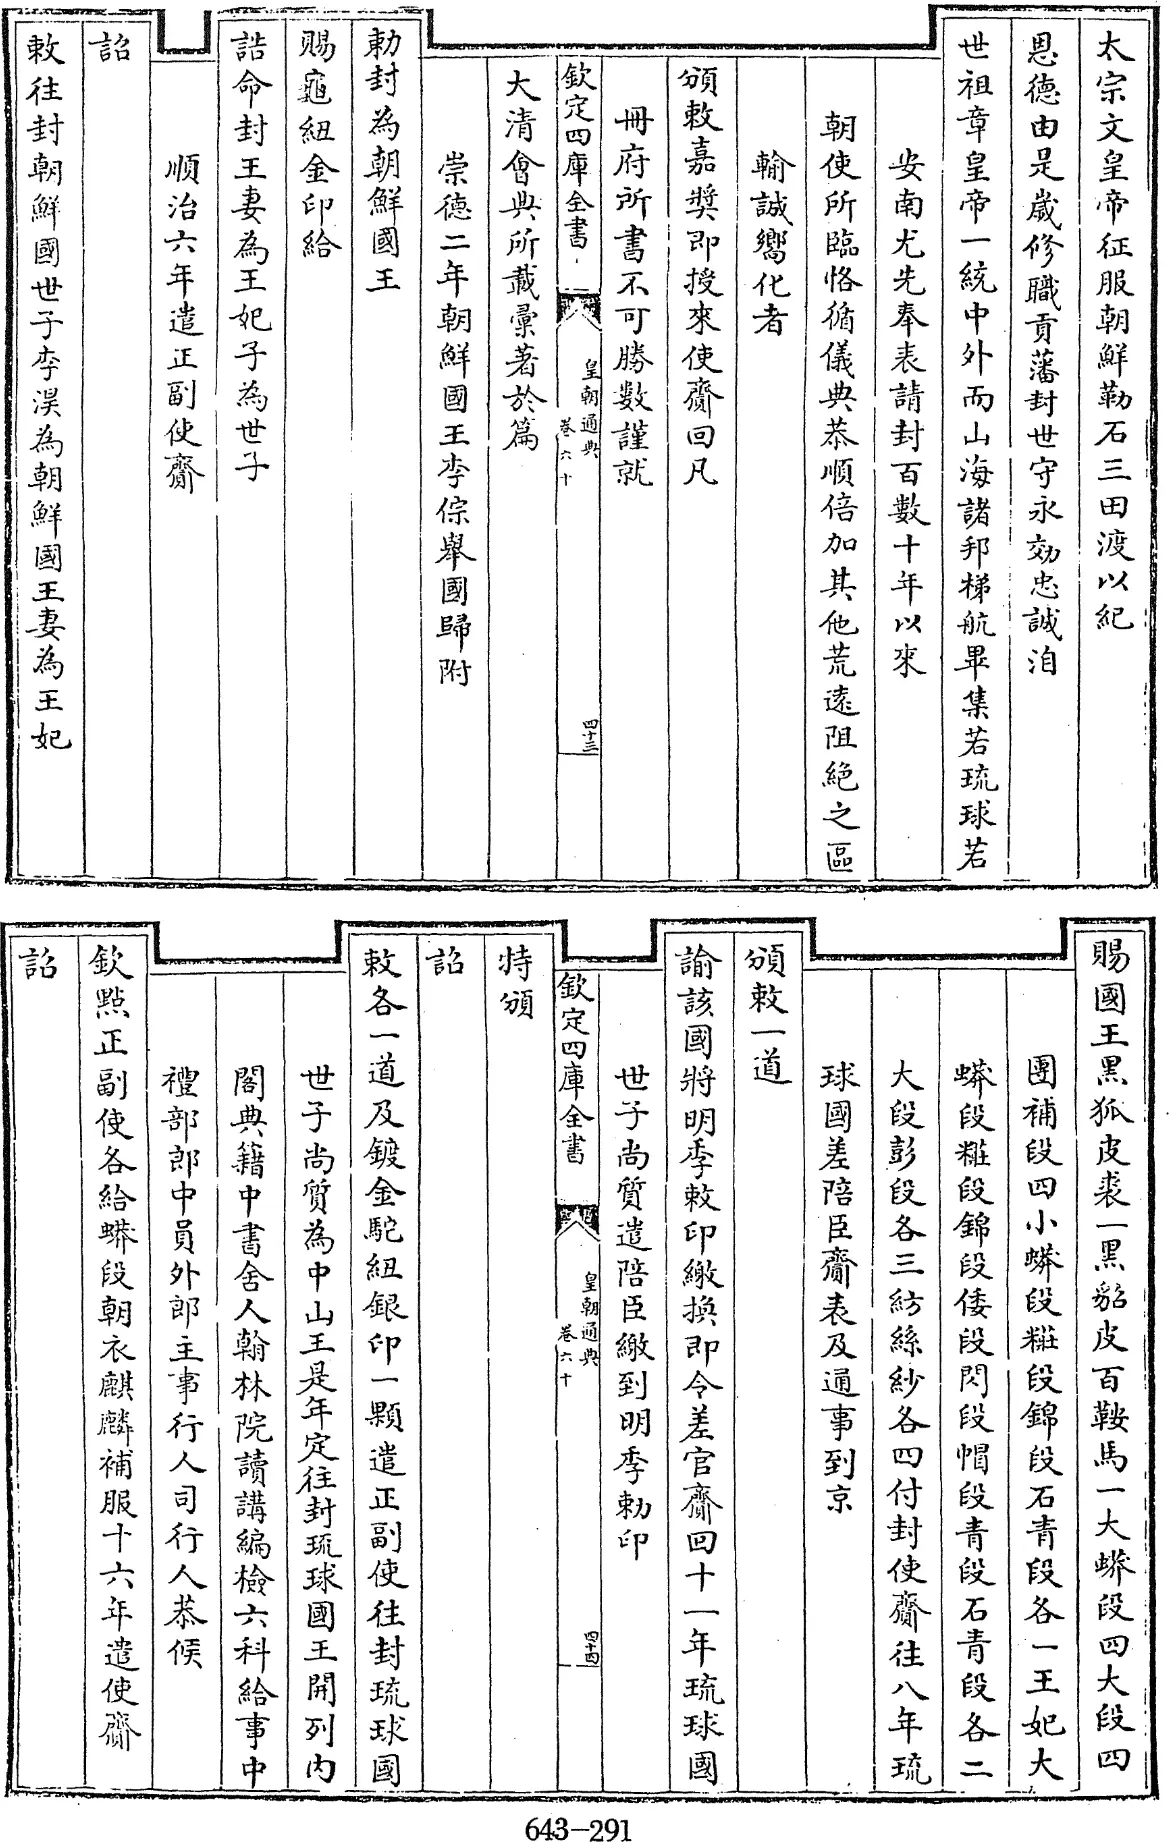 太宗文皇帝征服朝鮮勒石三田渡以紀
恩德由是嵗修職貢藩封世守永効忠誠洎
世祖章皇帝一統中外而山海諸邦梯航畢集若琉球若
安南尤先奉表請封百數十年以來
朝使所臨恪循儀典恭順倍加其他荒逺阻絶之區
輸誠嚮化者
頒敕嘉奬即授來使齎回凡
冊府所書不可勝數謹就
欽定四庫全書
皇朝通典
卷六十
四十三
大清會典所載彚著於篇
崇德二年朝鮮國王李倧舉國歸附
勅封為朝鮮國王
賜龜紐金印給
誥命封王妻為王妃子為世子
順治六年遣正副使齎
詔
敕往封朝鮮國世子李淏為朝鮮國王妻為王妃
賜國王黑狐皮裘一黑貂皮百鞍馬一大蟒段四大段四
團補段四小蟒段粧段錦段石青段各一王妃大
蟒段粧段錦段倭段閃段帽段青段石青段各二
大段彭段各三紡絲紗各四付封使齎往八年琉
球國差陪臣齎表及通事到京
頒敕一道
諭該國將明季敕印繳換即令差官齎回十一年琉球國
世子尚質遣陪臣繳到明季勅印
欽定四庫全書
皇朝通典
卷六十
四十四
特頒
詔
敕各一道及鍍金駝紐銀印一顆遣正副使往封琉球國
世子尚質為中山王是年定往封琉球國王開列內
閣典籍中書舍人翰林院讀講編檢六科給事中
禮部郎中員外郎主事行人司行人恭候
欽點正副使各給蟒段朝衣麒麟補服十六年遣使齎
詔
643-291